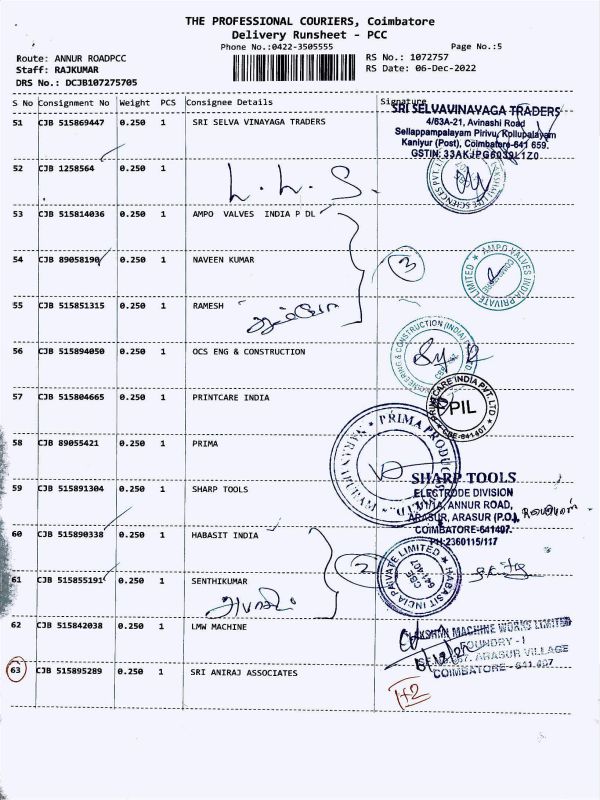 THE PROFESSIONAL COURIERS, Coimbatore
Delivery Runsheet - PCC
Phone No.:0422-3505555 Page No.:5
Route: ANNUR ROADPCC RS No.: 1072757
Staff: RAJKUMAR RS Date: 06-Dec-2022
DRS No.: DCJB107275705
S No Consignment No Weight PCS Consignee Details Signature
51 CJB 515869447 0.250 1 SRI SELVA VINAYAGA TRADERS
SRI SELVAVINAYAGA TRADERS
4/63A-21, Avinashi Road
Sellappampalayam Pirivu, Kollupalayam
Kaniyur (Post), Coimbatore-641 659.
GSTIN: 33AKJPG6039L1Z0
52 CJB 1258564 0.250 1
L.L.S.
53 CJB 515814036 0.250 1 AMPO VALVES INDIA P DL
54 CJB 89058190 0.250 1 NAVEEN KUMAR
3
AMPO VALVES INDIA PRIVATE LIMITED
COIMBATORE
55 CJB 515851315 0.250 1 RAMESH
56 CJB 515894050 0.250 1 OCS ENG & CONSTRUCTION
ENGINEERING & CONSTRUCTION (INDIA)
57 CJB 515804665 0.250 1 PRINTCARE INDIA
PRINTCARE INDIA PVT. LTD.
PPIL
CBE-641407
58 CJB 89055421 0.250 1 PRIMA
PRIMA PRODUCTS
59 CJB 515891304 0.250 1 SHARP TOOLS
SHARP TOOLS
ELECTRODE DIVISION
ANNUR ROAD,
ARASUR, ARASUR (P.O.),
COIMBATORE-641407.
PH:2360115/117
60 CJB 515890338 0.250 1 HABASIT INDIA
2
HABASIT INDIA PRIVATE LIMITED
CBE
641-407
61 CJB 515855191 0.250 1 SENTHIKUMAR
62 CJB 515842038 0.250 1 LMW MACHINE
LAKSHMI MACHINE WORKS LIMITED
FOUNDRY - I
ARASUR VILLAGE
COIMBATORE - 641 407
6/12/22
63 CJB 515895289 0.250 1 SRI ANIRAJ ASSOCIATES
H2